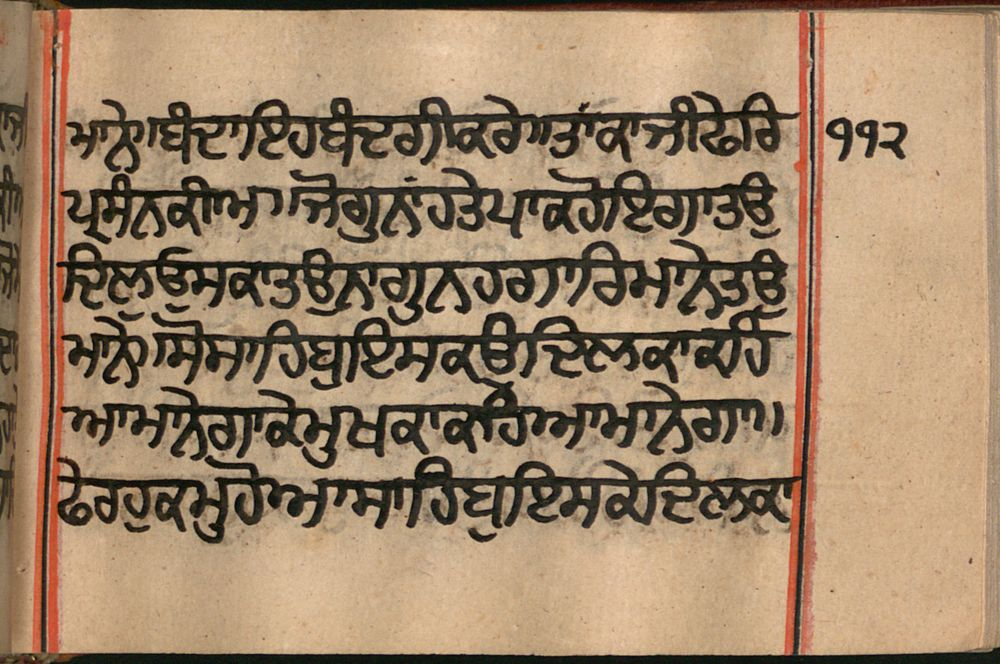 ਮਾਨੇ॥ਬੰਦਾਇਹਬੰਦਗੀਕਰੇ॥ਤਾਂਕਾਜੀਫੇਰਿ ੧੧੨
ਪ੍ਰਸੰਨਕੀਆ॥ਜੋਗੁਨਾਂਹਤੇਪਾਕਹੋਇਗਾਤਉ
ਦਿਲੁਉਸਕਾਤਉਨਾਗੁਨਹਗਾਰਿਮਾਨੇਤਉ
ਮਾਨੇ॥ਸੋਸਾਹਿਬੁਇਸਕਉਦਿਲਕਾਕਹਿ
ਆਮਾਨੇਗਾਕੇਮੁਖਕਾਕਹਿਆਮਾਨੇਗਾ॥
ਫੇਰਹੁਕਮੁਹੋਆਸਾਹਿਬੁਇਸਕੇਦਿਲਕਾ